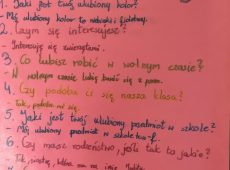 1. Jaki jest twój ulubiony kolor?
- Mój ulubiony kolor to niebieski i fioletowy.
2. Czym się interesujesz?
- Interesuję się zwierzętami.
3. Co lubisz robić w wolnym czasie?
- W wolnym czasie lubię bawić się z psem.
4. Czy podoba ci się nasza klasa?
- Tak, podoba mi się.
5. Jaki jest twój ulubiony przedmiot w szkole?
- Mój ulubiony przedmiot w szkole to w-f.
6. Czy masz rodzeństwo, jeśli tak to jakie?
- Tak, siostrę, która ma na imię